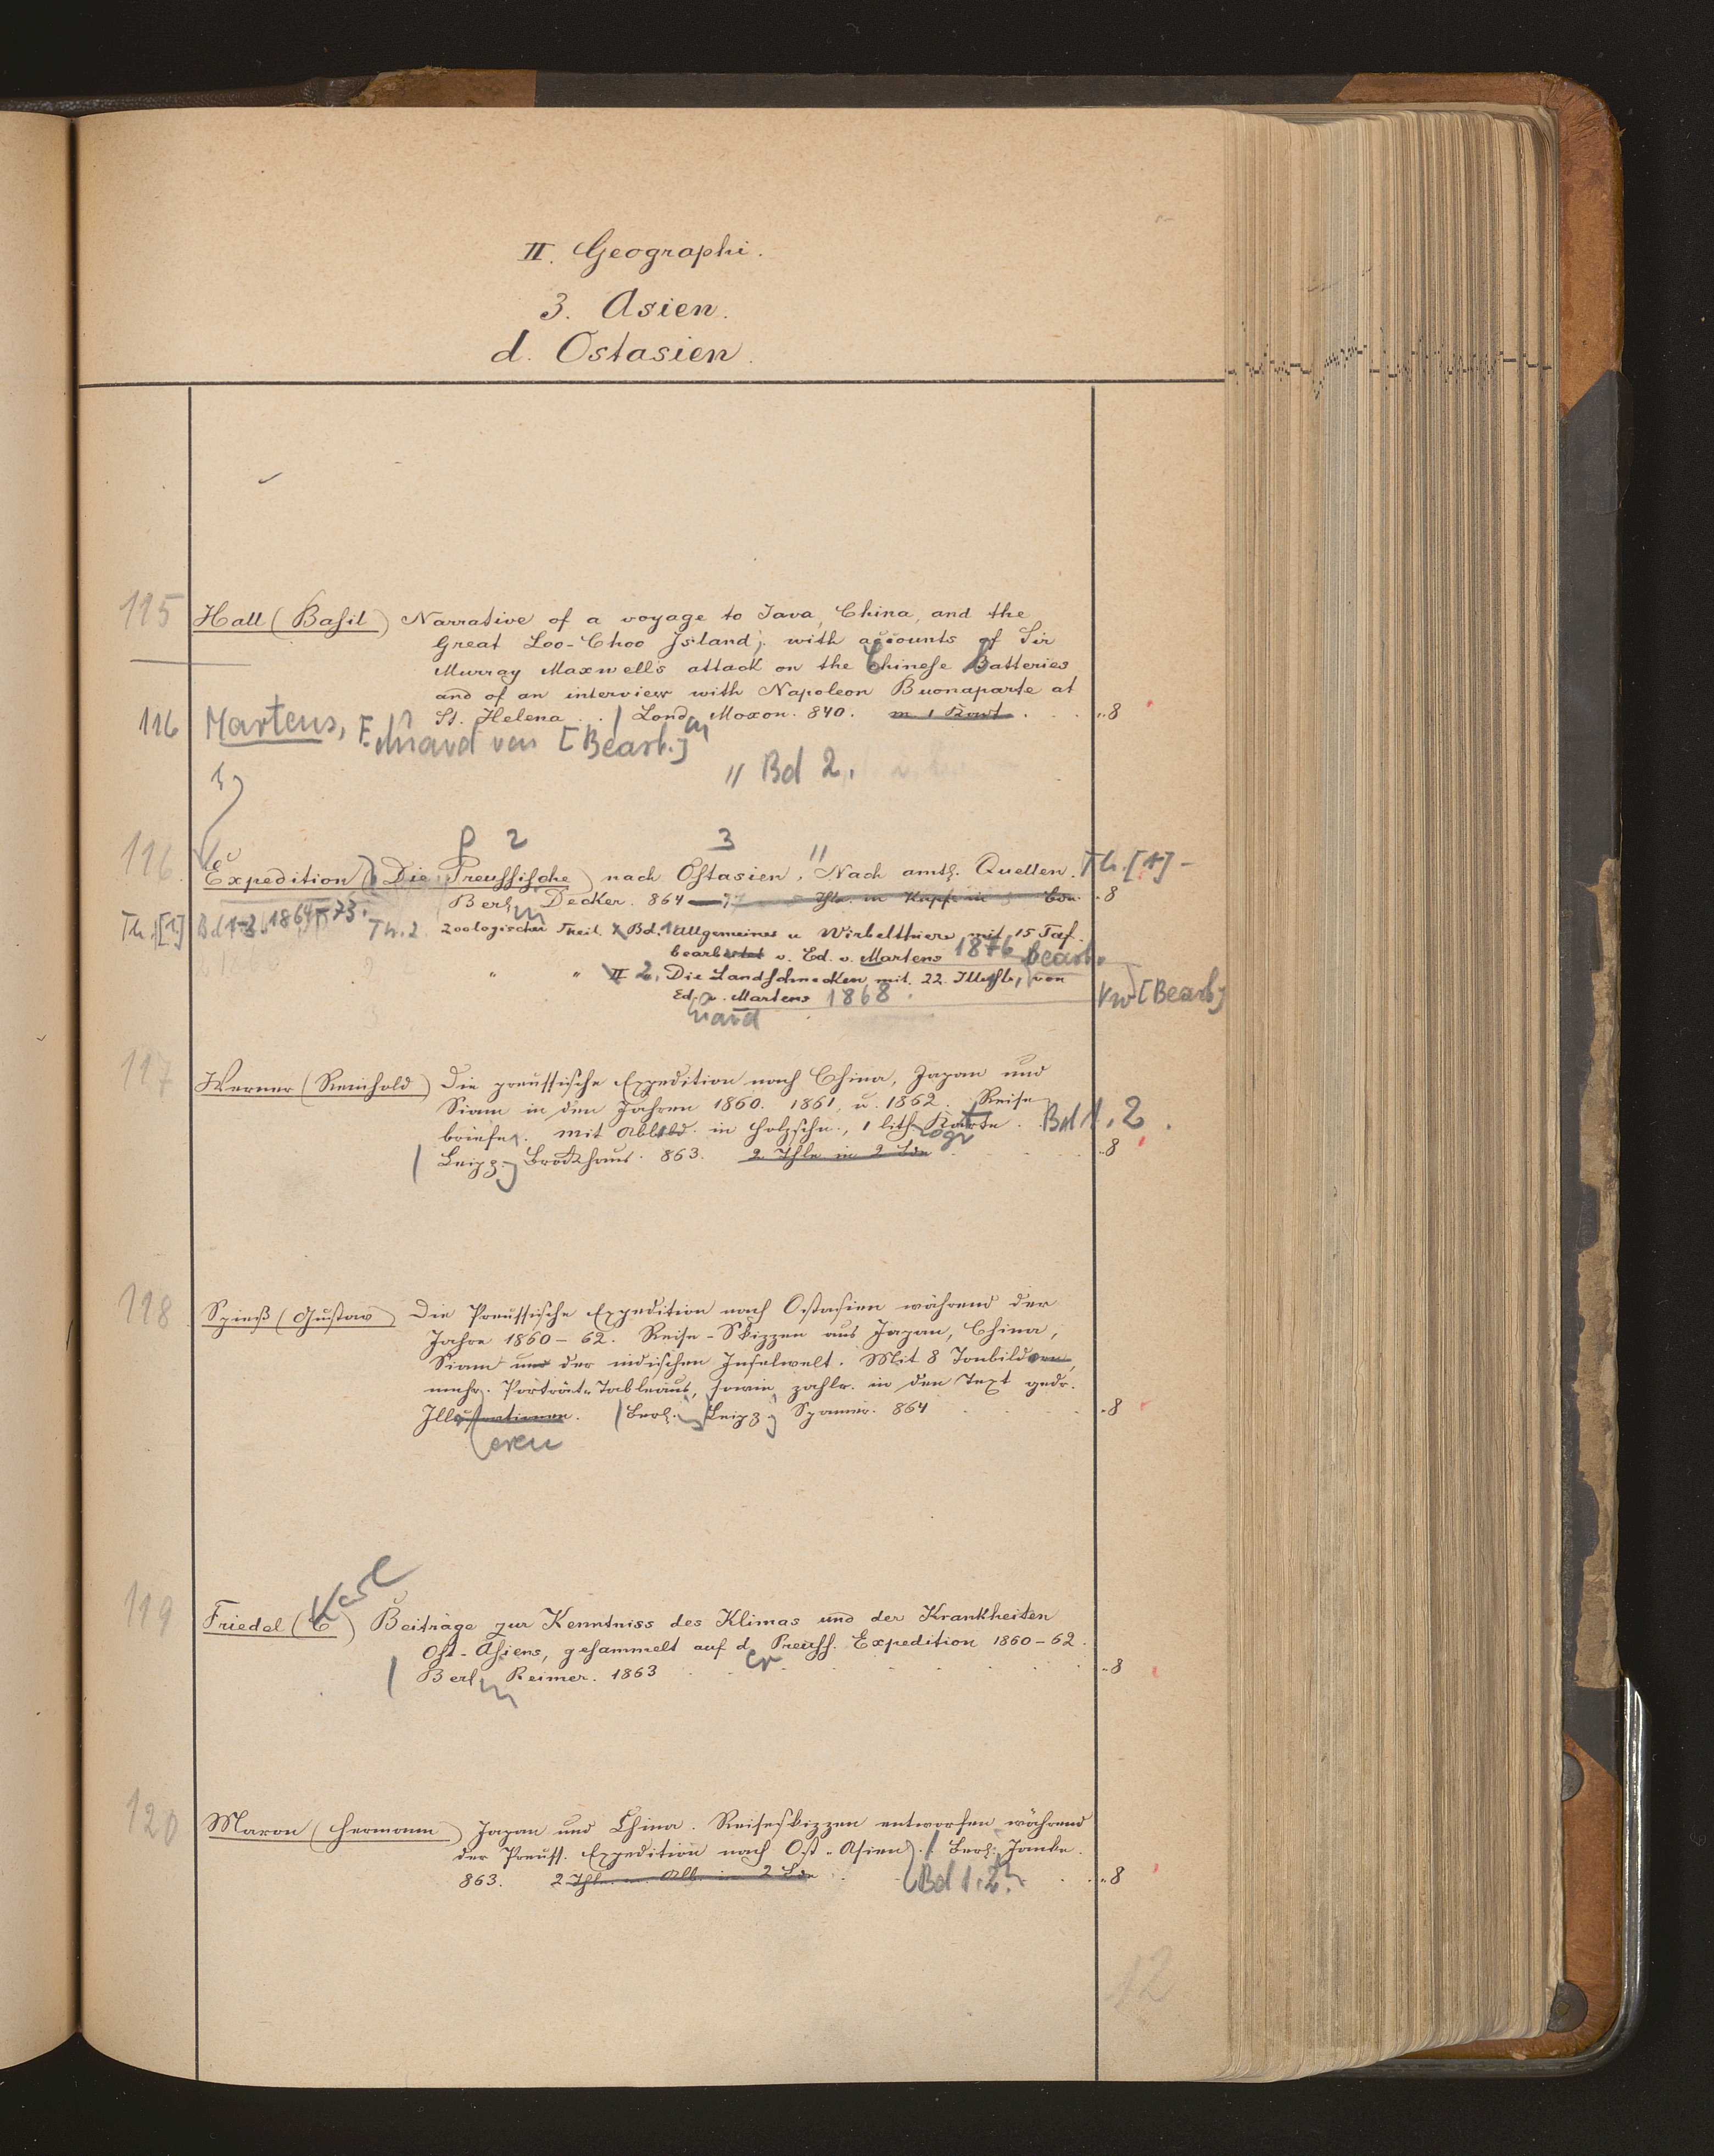 II. Geographi.
3. Asien.
d. Ostasien.
115 Hall (Basil) Narrative of a voyage to Java, China, and the
Great Loo-Choo Island; with accounts of Sir
Murray Maxwell's attack on the Chinese Batteries
and of an interview with Napoleon Buonaparte at
St. Helena. Lond. Moxon. 840. m. 1 Kart. 8
116 Martens, Eduard von [Bearb.]
" Bd 2.
1)
2 3
116. Expedition (Die Preussische) nach Ostasien. Nach amtl. Quellen. Th. [1] -
Berlin Decker. 864 8
Th. [1] Bd 1-3. 1864-73. Th. 2. Zoologischer Theil. Bd. 1. Allgemeines u Wirbelthiere mit 15 Taf.
bearbeitet v. Ed. v. Martens 1876 bearb.
" " II 2. Die Landschnecken mit 22 Illustr. von
Ed. v. Martens 1868. [Bearb.]
uard
117 Werner (Reinhold) Die preussische Expedition nach China, Japan und
Siam in den Jahren 1860. 1861. u. 1862. Reise-
briefe. mit Abbild. in Holzschn., 1 lith. Karte. Bd 1. 2.
Leipz. Brockhaus. 863. 2 Thle in 2 Bde 8
118 Spieß (Gustav) Die Preussische Expedition nach Ostasien während der
Jahre 1860-62. Reise-Skizzen aus Japan, China,
Siam und der indischen Inselwelt. Mit 8 Tonbildern,
mehr. Porträt-Tableaus, sowie zahlr. in den Text gedr.
Illustrationen. Berl. Leipz. Spamer. 864 8
119 Friedel (C) Karl Beiträge zur Kenntniss des Klimas und der Krankheiten
Ost-Asiens, gesammelt auf d. Preuss. Expedition 1860-62.
er
Berlin Reimer. 1863 8
120 Maron (Hermann) Japan und China. Reiseskizzen entworfen während
der Preuss. Expedition nach Ost-Asien. Berl. Janke.
863. 2 Thle. in 2 Bde Bd 1. 2. 8
12